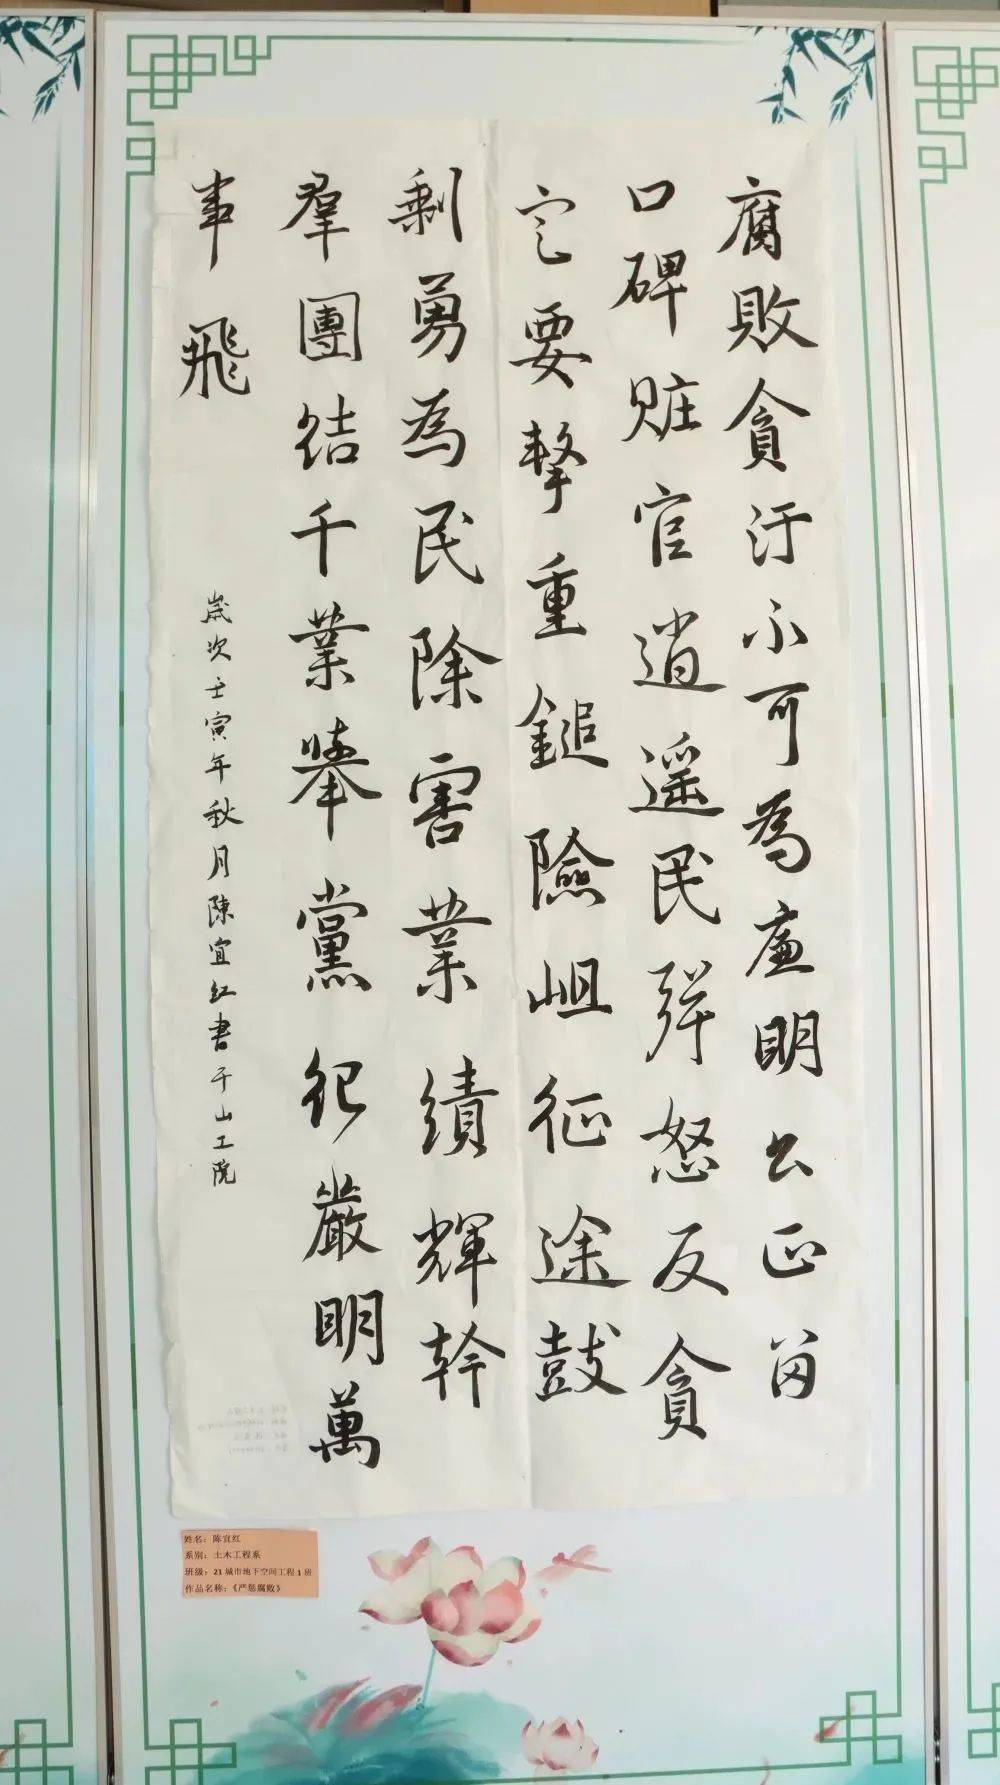 腐敗貪汙不可為廉明公正留
口碑賍官逍遥民殚怒反貪
定要擊重鎚險岨征途鼓
剩勇為民除害業績輝幹
羣團結千業舉黨紀嚴明萬
事飛
歲次壬寅年秋月陳宜红書于山工院
姓名：陈宜红
系别：土木工程系
班级：21城市地下空间工程1班
作品名称：《严惩腐败》